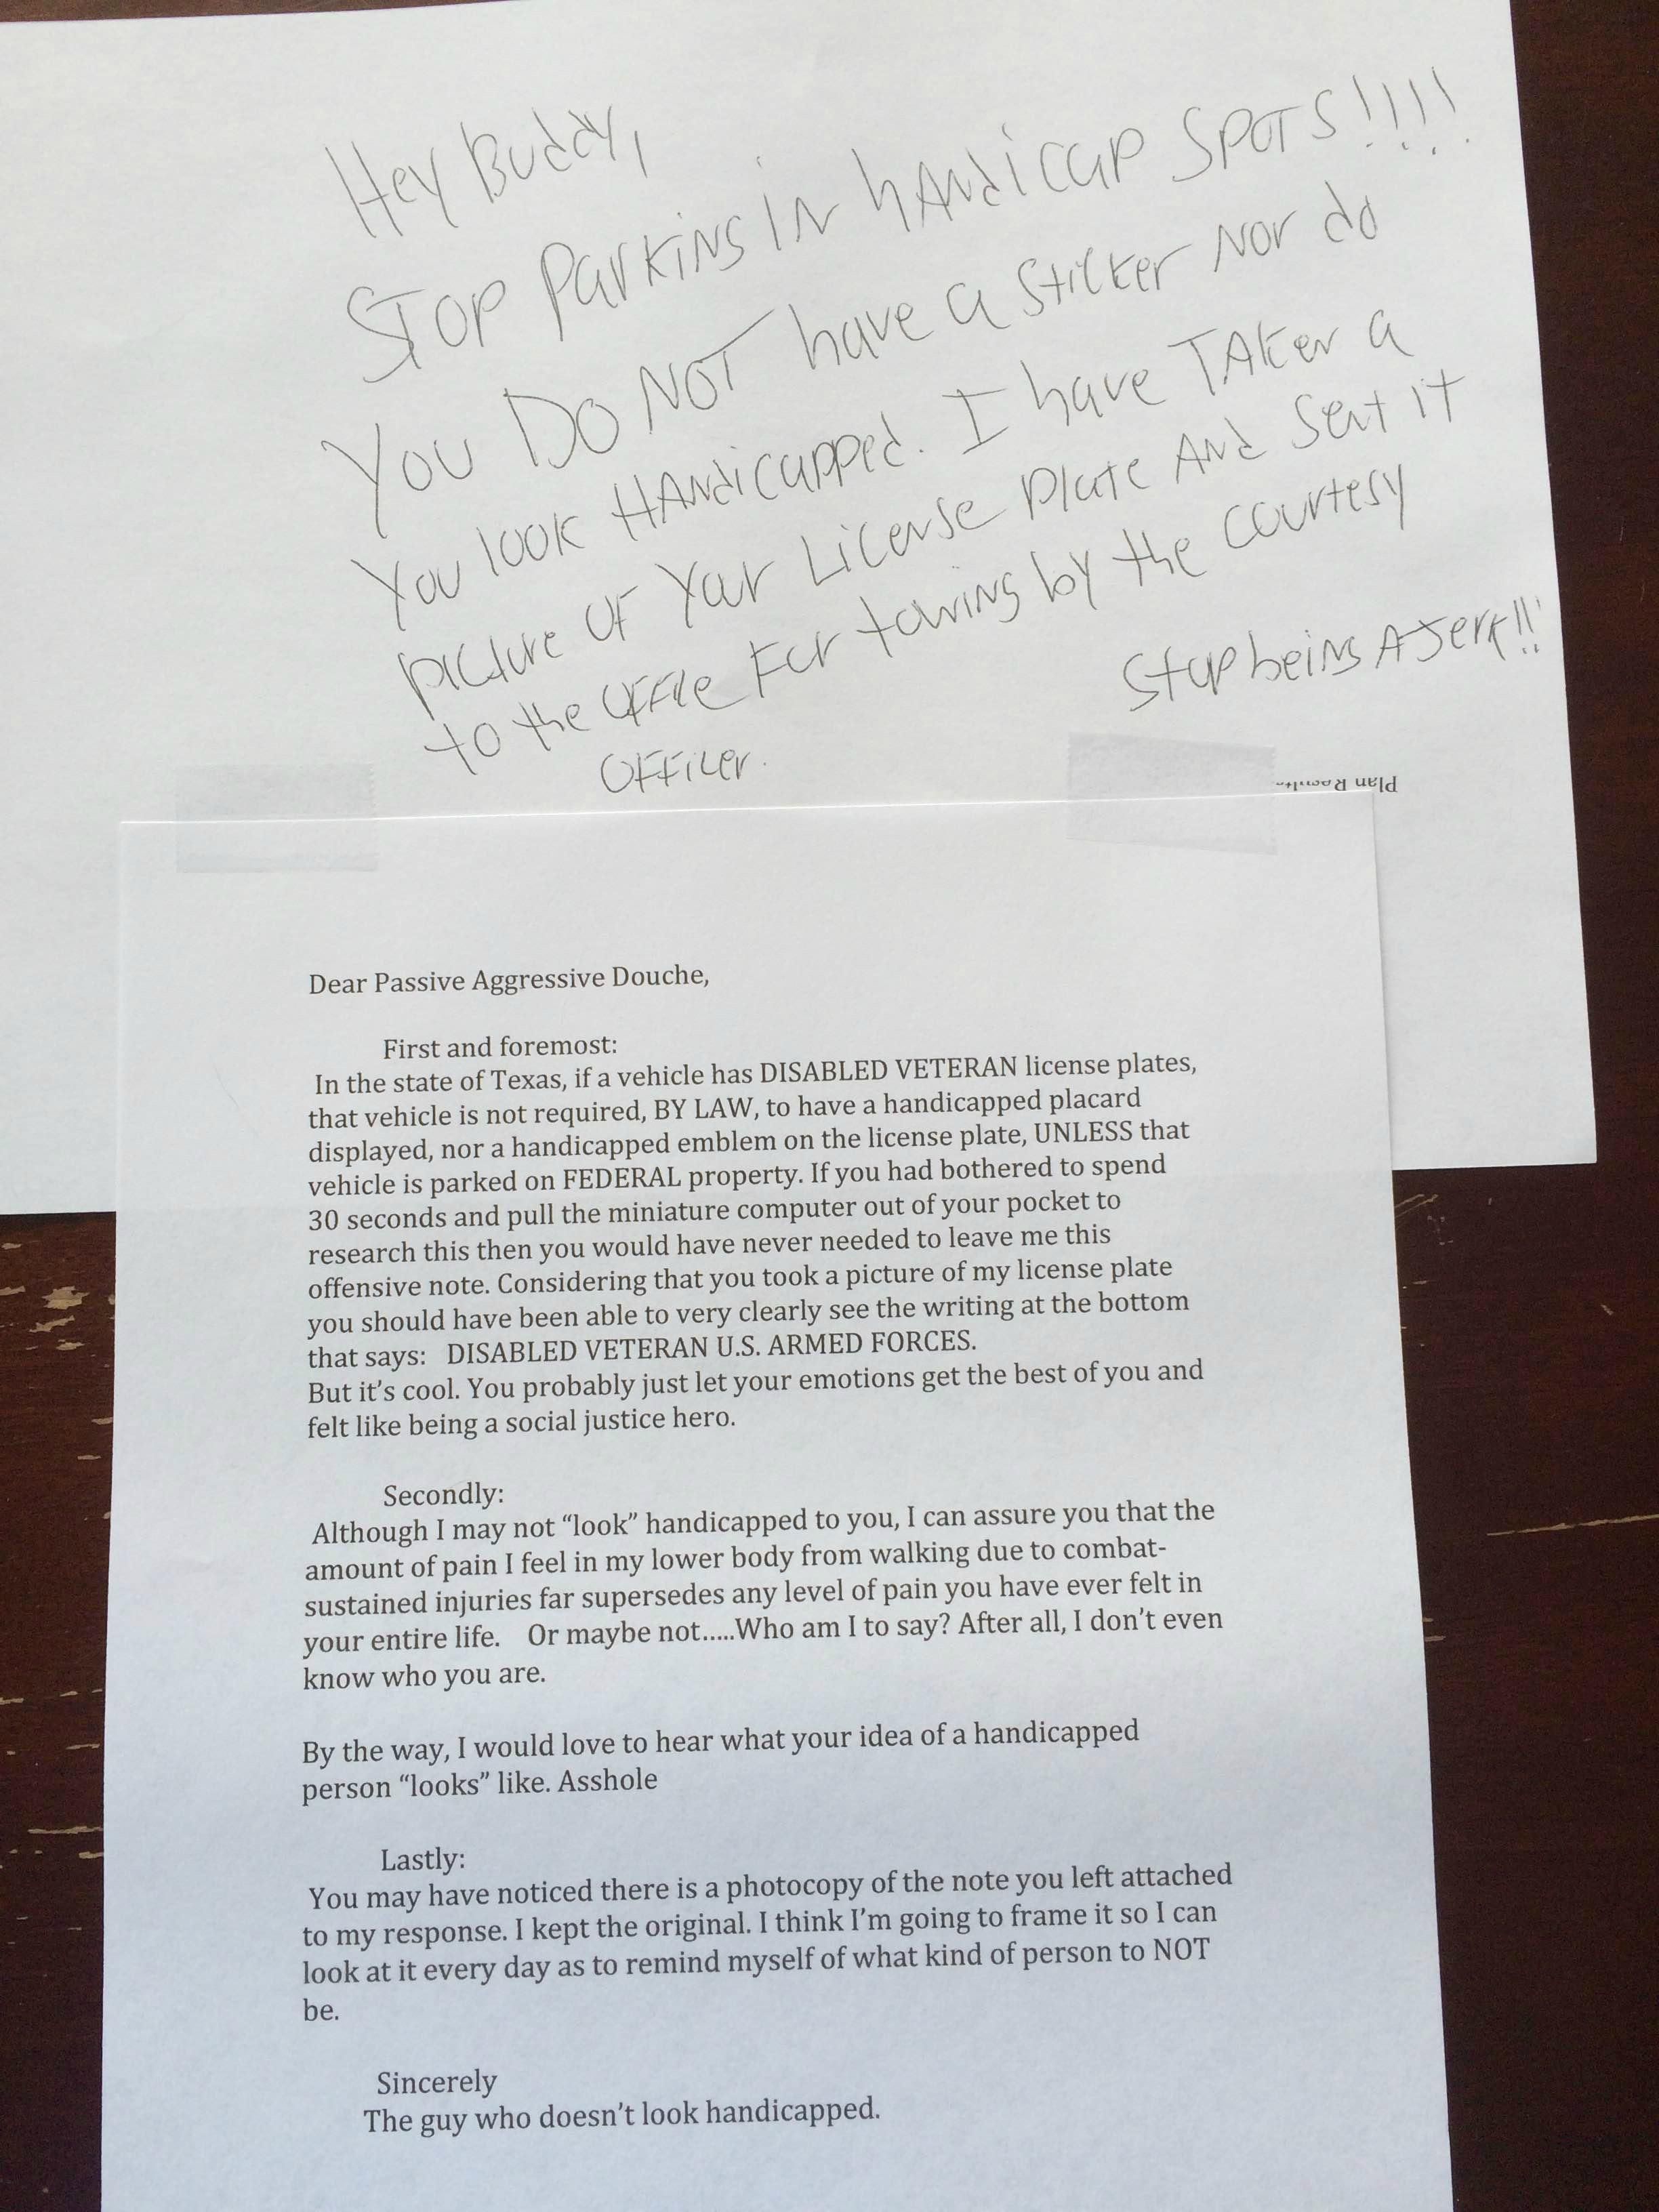 Hey Buddy,
STOP PARKING IN HANDICAP SPOTS!!!!
You DO NOT have a sticker Nor do
You look HANDicapped. I have TAKen a
picture of Your License Plate And Sent It
to the OFFice For towing by the courtesy
OFFicer.
Stop being A Jerk!!
Plan Results
Dear Passive Aggressive Douche,
First and foremost:
In the state of Texas, if a vehicle has DISABLED VETERAN license plates,
that vehicle is not required, BY LAW, to have a handicapped placard
displayed, nor a handicapped emblem on the license plate, UNLESS that
vehicle is parked on FEDERAL property. If you had bothered to spend
30 seconds and pull the miniature computer out of your pocket to
research this then you would have never needed to leave me this
offensive note. Considering that you took a picture of my license plate
you should have been able to very clearly see the writing at the bottom
that says:   DISABLED VETERAN U.S. ARMED FORCES.
But it's cool. You probably just let your emotions get the best of you and
felt like being a social justice hero.
Secondly:
Although I may not “look” handicapped to you, I can assure you that the
amount of pain I feel in my lower body from walking due to combat-
sustained injuries far supersedes any level of pain you have ever felt in
your entire life.   Or maybe not…..Who am I to say? After all, I don't even
know who you are.
By the way, I would love to hear what your idea of a handicapped
person “looks” like. Asshole
Lastly:
You may have noticed there is a photocopy of the note you left attached
to my response. I kept the original. I think I'm going to frame it so I can
look at it every day as to remind myself of what kind of person to NOT
be.
Sincerely
The guy who doesn't look handicapped.